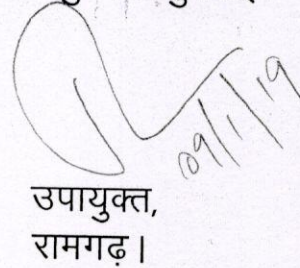 09/1/19
उपायुक्त,
रामगढ़।